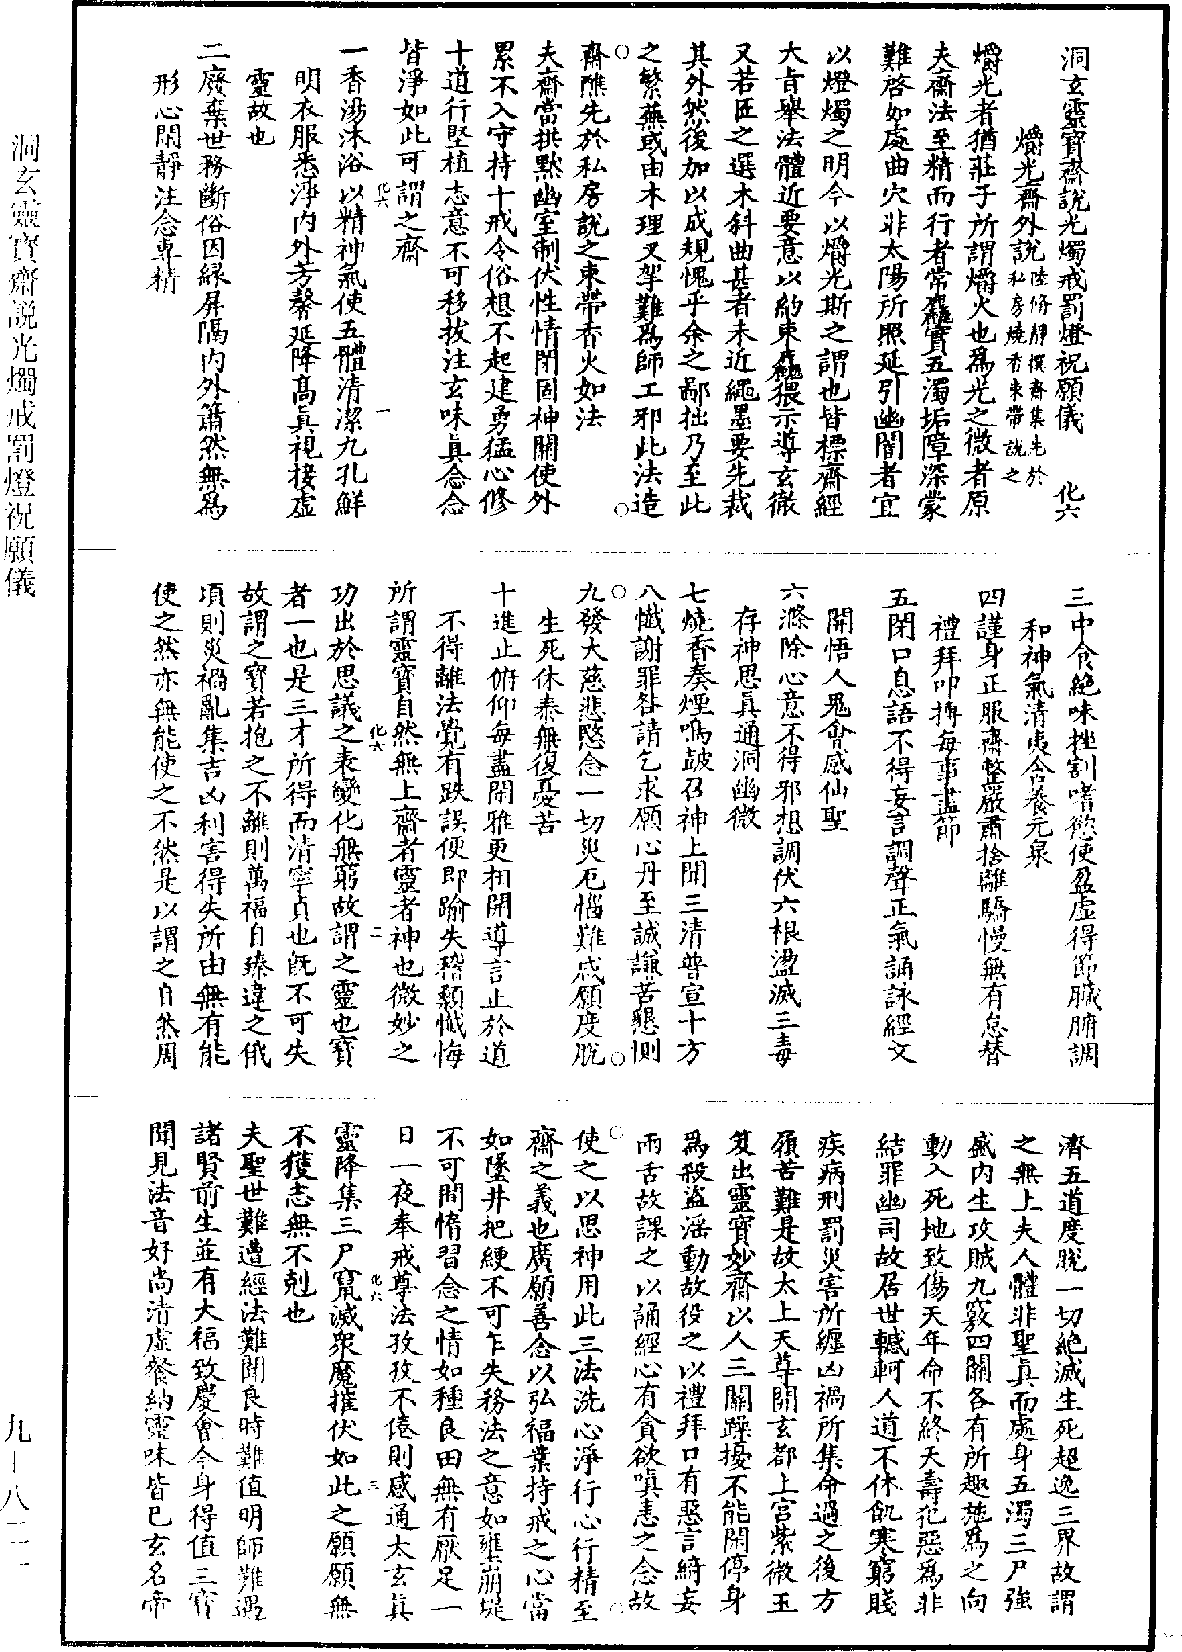 洞玄靈寶齋說光燭戒罰燈祝願儀
九—八二一
洞玄靈寶齋說光燭戒罰燈祝願儀　化六
爝光齋外說陸脩靜撰齋集先於私房燒香束帶說之
爝光者猶莊子所謂爝火也為光之微者原
夫齋法至精而行者常麤實五濁垢障深蒙
難啓如處曲穴非太陽所照延引幽闇者宜
以燈燭之明今以爝光斯之謂也皆標齋經
大旨舉法體近要意以約束麤猥示導玄徹
又若匠之選木斜曲甚者未近繩墨要先裁
其外然後加以成規愧乎余之鄙拙乃至此
之繁蕪或由木理叉拏難為師工邪此法造
齋醮先於私房說之束帶香火如法
夫齋當拱默幽室制伏性情閉固神關使外
累不入守持十戒令俗想不起建勇猛心修
十道行堅植志意不可移拔注玄味真念念
皆淨如此可謂之齋
化六
一
一香湯沐浴以精神氣使五體清潔九孔鮮
明衣服悉淨內外芳馨延降高真視接虛
靈故也
二廢棄世務斷俗因緣屏隔內外蕭然無為
形心閑靜注念專精
三中食絕味挫割嗜慾使盈虛得節臟腑調
和神氣清夷含養元泉
四謹身正服齋整嚴肅捨離驕慢無有怠替
禮拜叩搏每事盡節
五閉口息語不得妄言調聲正氣誦詠經文
開悟人鬼會感仙聖
六滌除心意不得邪想調伏六根盪滅三毒
存神思真通洞幽微
七燒香奏煙鳴鼓召神上聞三清普宣十方
八懺謝罪咎請乞求願心丹至誠謙苦懇惻
九發大慈悲愍念一切災厄惱難咸願度脫
生死休泰無復憂苦
十進止俯仰每盡閑雅更相開導言止於道
不得離法覺有跌誤便即踰失稽顙懺悔
所謂靈寶自然無上齋者靈者神也微妙之
化六
二
功出於思議之表變化無窮故謂之靈也寶
者一也是三才所得而清寧貞也旣不可失
故謂之寶若抱之不離則萬福自臻違之俄
項則災禍亂集吉凶利害得失所由無有能
使之然亦無能使之不然是以謂之自然周
濟五道度脫一切絕滅生死超逸三界故謂
之無上夫人體非聖真而處身五濁三尸強
盛內生攻賊九竅四關各有所趣施為之向
動入死地致傷天年命不終天壽犯惡為非
結罪幽司故居世轗軻人道不休飢寒窮賤
疾病刑罰災害所纏凶禍所集命過之後方
嶺苦難是故太上天尊開玄都上宮紫微玉
笈出靈寶妙齋以人三關躁擾不能閑停身
為殺盜淫動故役之以禮拜口有惡言綺妄
兩舌故課之以誦經心有貪欲嗔恚之念故
使之以思神用此三法洗心淨行心行精至
齋之義也廣願善念以弘福業持戒之心當
如墜井把綆不可乍失務法之意如壅崩堤
不可間惰習念之情如種良田無有厭足一
日一夜奉戒尊法孜孜不倦則感通太玄真
化六
三
靈降集三尸竄滅眾魔摧伏如此之願願無
不獲志無不剋也
夫聖世難遭經法難聞良時難值明師難遇
諸賢前生並有大福致慶會今身得值三寶
聞見法音好尚清虛餐納靈味皆已玄名帝